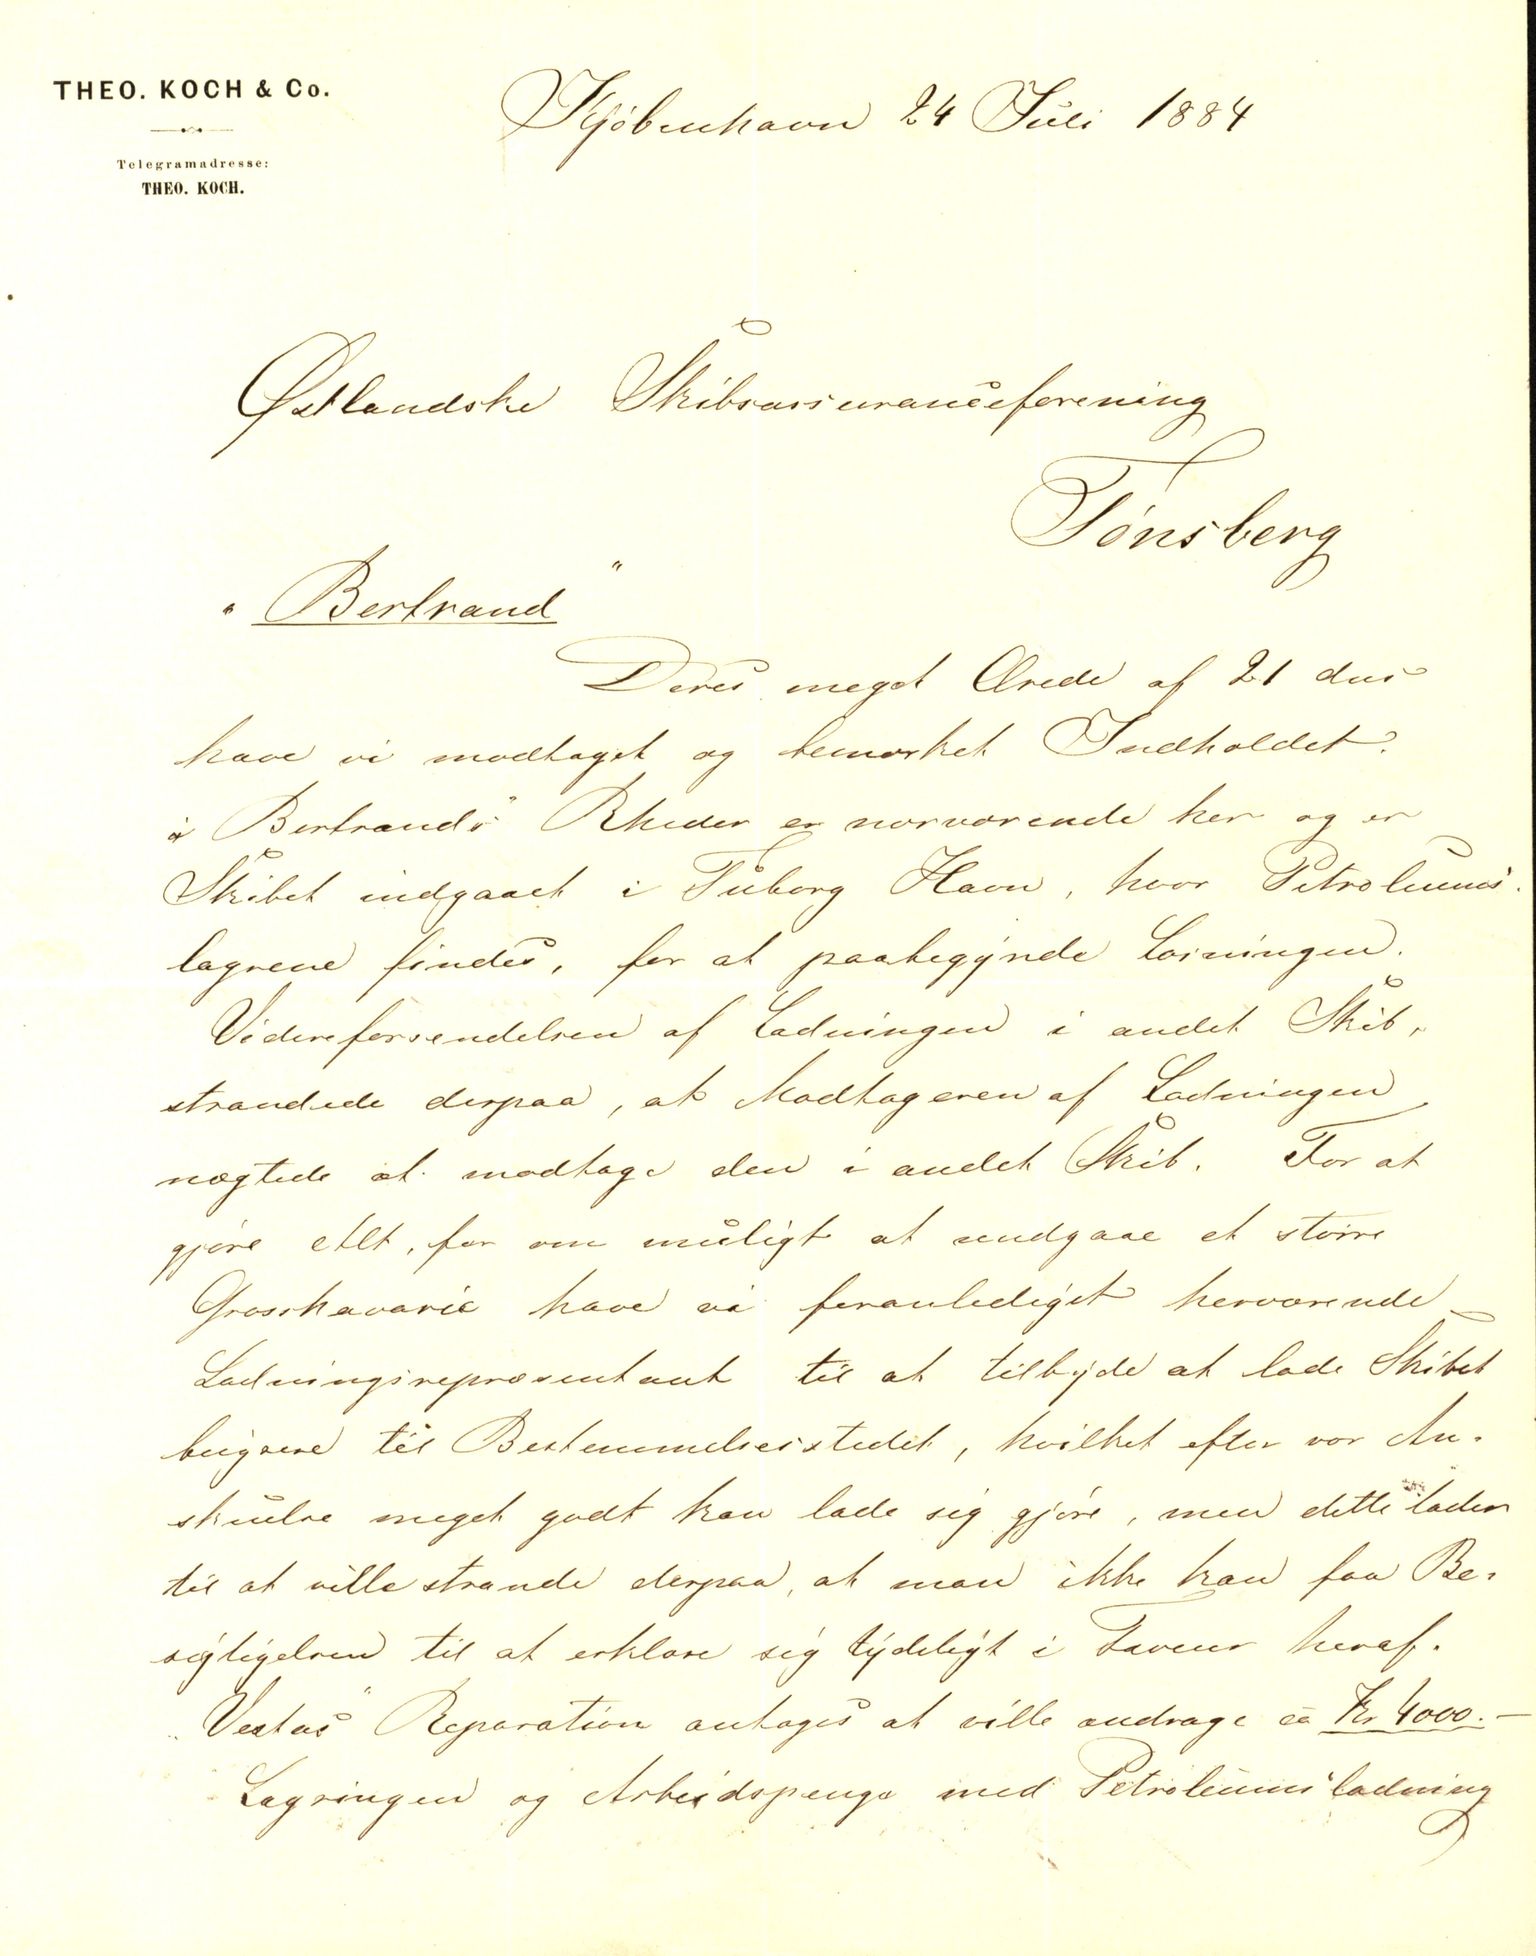 THEO. KOCH & Co.
Telegramadresse:
THEO. KOCH.
Kjöbenhavn 24 Juli 1884
Østlandske Skibsassuranceforening
Tönsberg
"Bertrand"
Deres meget Ærede af 21 dns
have vi modtaget og bemærket Indholdet.
"Bertrands" Rheder er nærværende her og er
Skibet indgaaet i Tuborg Havn, hvor Petroleums-
lagrene findes, for at paabegynde Losningen.
Videreforsendelsen af Ladningen i andet Skib,
strandede derpaa, at Modtageren af Ladningen
nægtede at modtage den i andet Skib. For at
gjöre Alt, for om muligt at undgaae et större
Grosshavarie have vi foranlediget herværende
Ladningsrepræsentant til at tilbyde at lade Skibet
bugsere til Bestemmelsesstedet, hvilket efter vor An-
skuelse meget godt kan lade sig gjöre, men dette lader
til at ville strande derpaa, at man ikke kan faa Be-
sigtigelsen til at erklære sig tydeligt i Faveur heraf.
"Vestas" Reparation antages at ville andrage ca Kr 4000.—
Lagringen og Arbeidspenge med Petroleumsladning